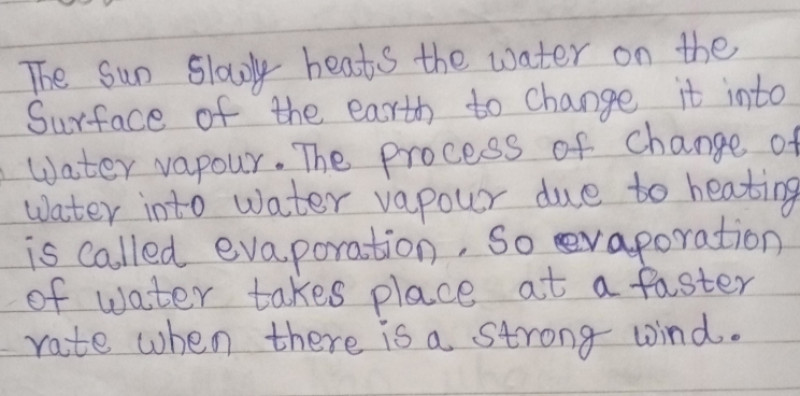 The Sun Slowly heats the water on the
Surface of the earth to change it into
Water vapour. The process of change of
Water into water vapour due to heating
is called evaporation. So evaporation
of water takes place at a faster
rate when there is a strong wind.